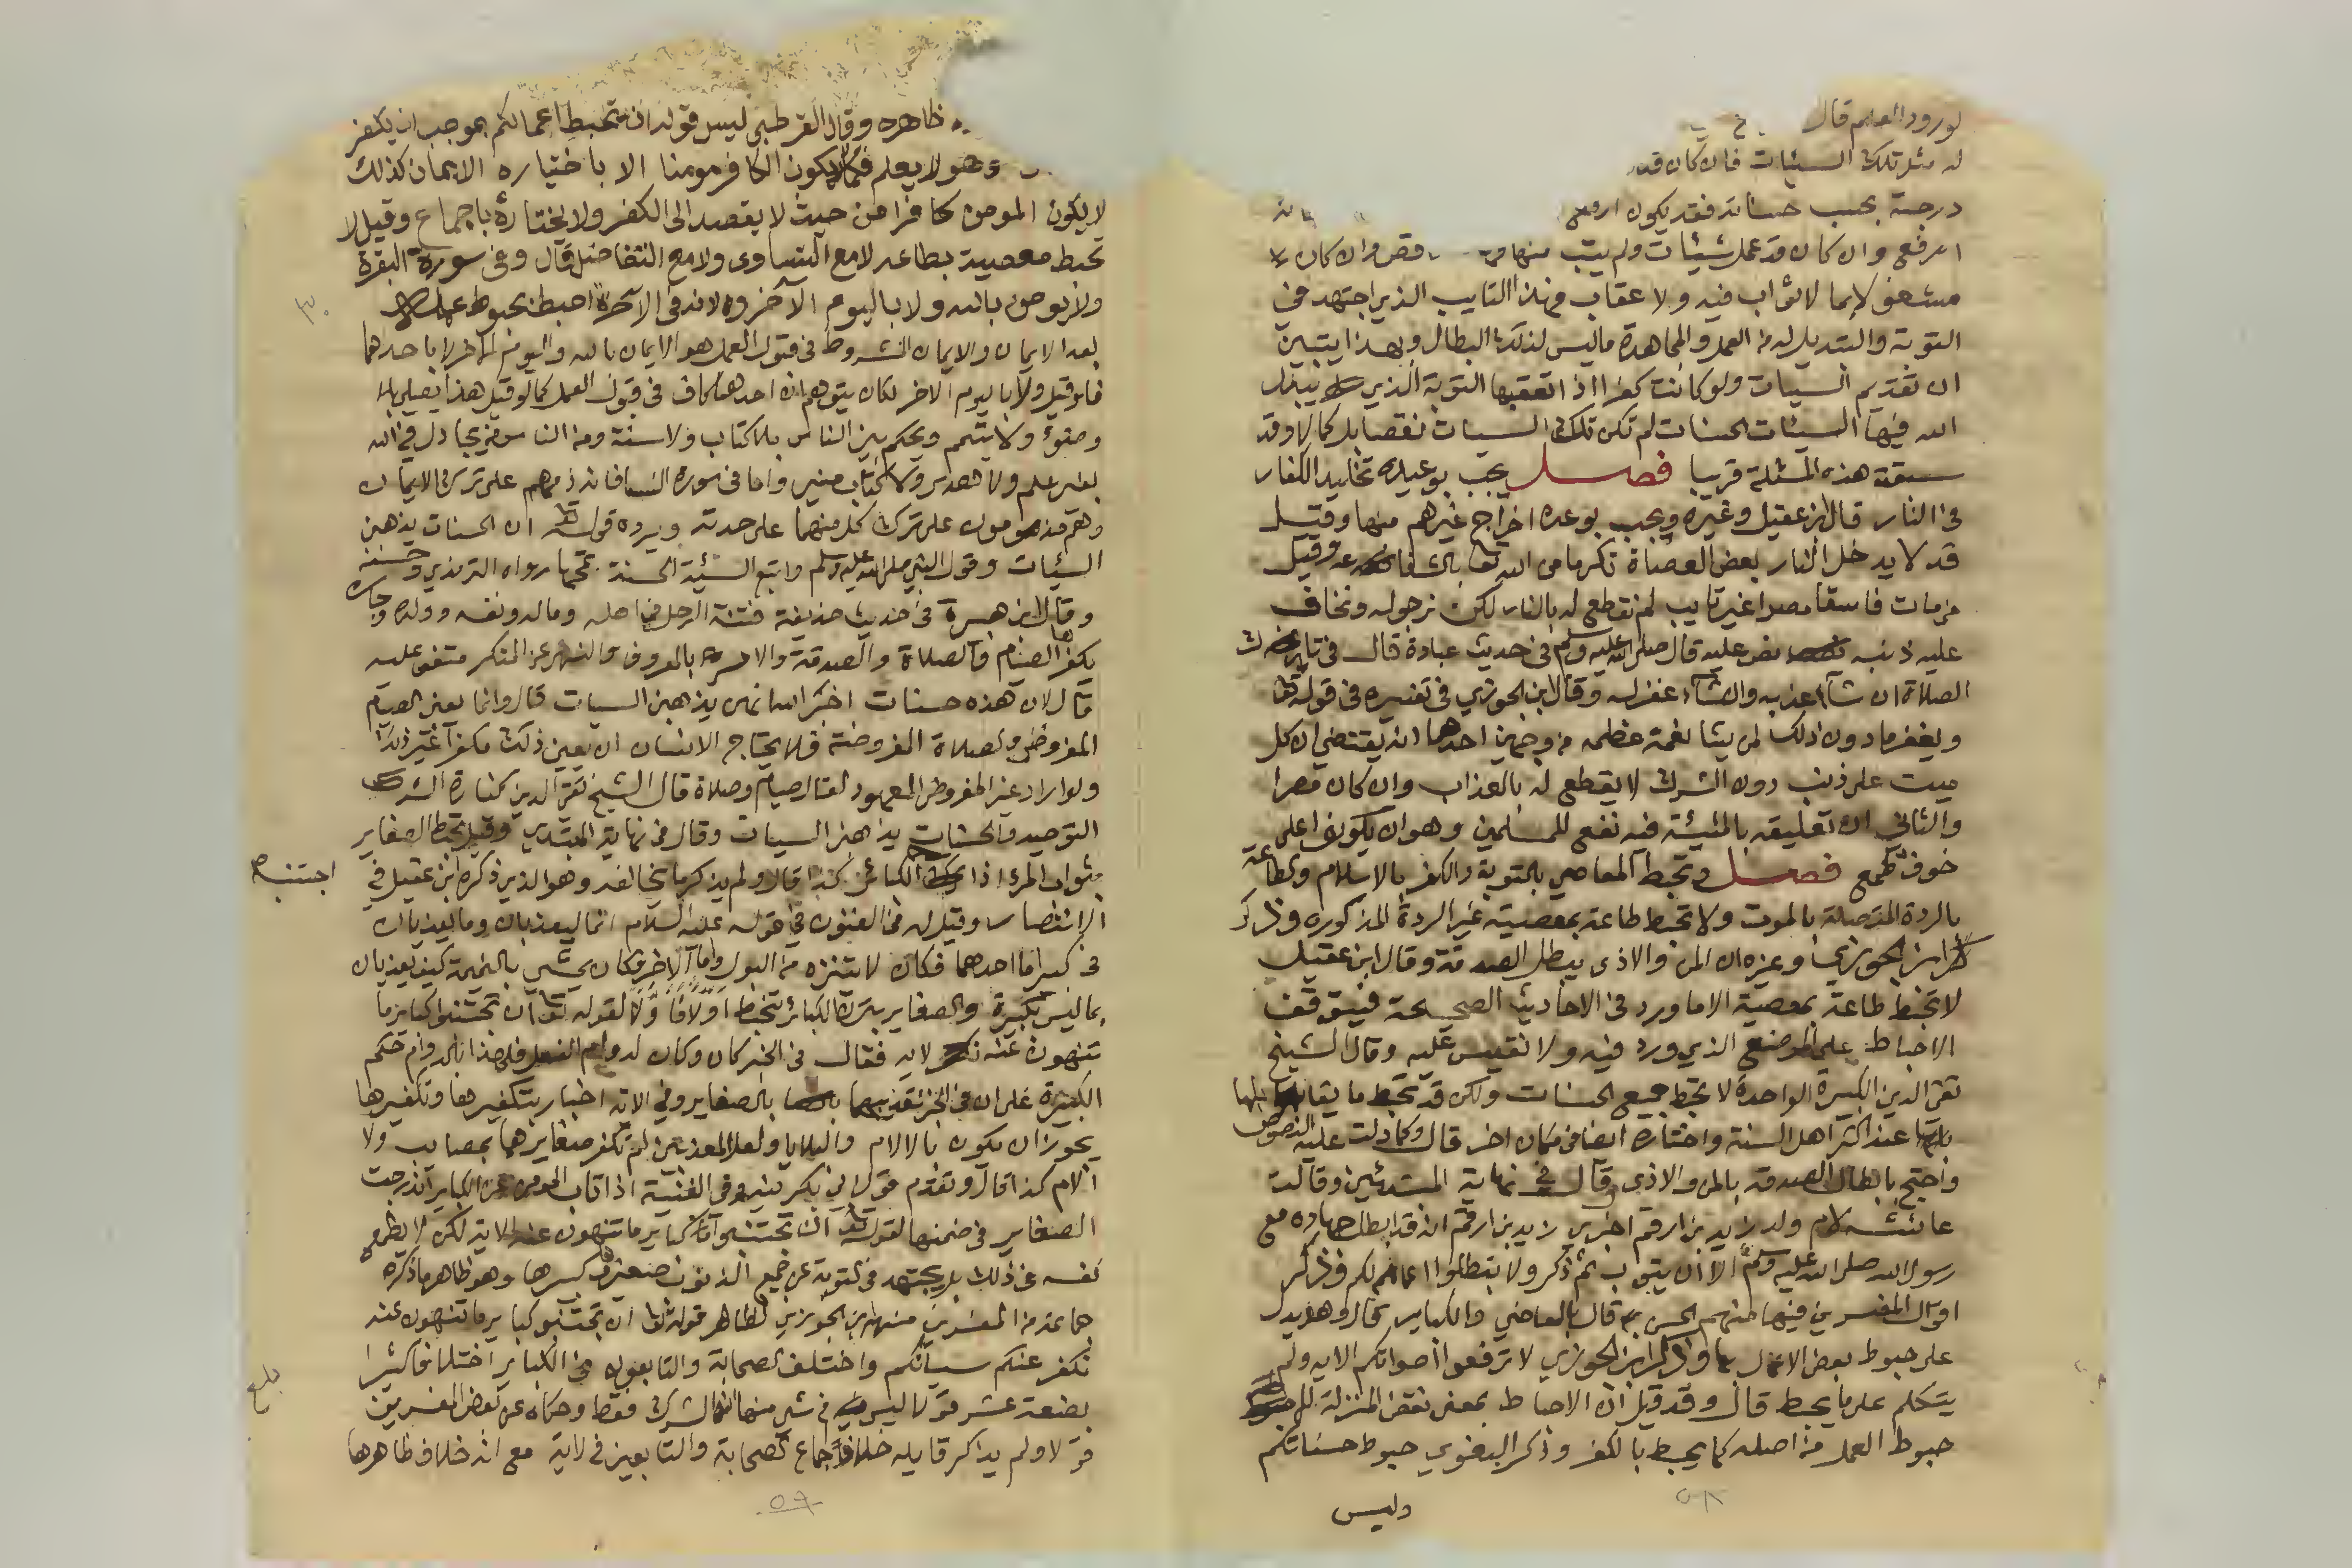 لورود العلم قال
له مثل تلك السيئات فان كان قد
درجته بحسب حسناته فقد يكون ارفع
ارفع وان كان قد عمل سيئات ولم يتب منها فهو وان كان
مشغولا بما لا ثواب فيه ولا عقاب فهذا التايب الذي اجتهد في
التوبة والتبديل له من العمل والمجاهدة ما ليس لذلك البطال وبهذا يتبين
ان تقديم السيات ولو كانت كفرا اذا تعقبها التوبة الذي يبدل
الله فيها السيئات الحسنات لم تكن تلك السيات نقصا بل كمالا وقد
سبقت هذه المسئلة قريبا فصل يجب بوعيده تخليد الكفار
في النار قال ابن عقيل وغيره ويجب بوعده اخراج غيرهم منها وقيل
قد لا يدخل النار بعض العصاة تكرما من الله تعا بالشفاعة وقيل
من مات فاسقا مصرا غير تايب لم نقطع له بالنار لكن نرجو له ونخاف
عليه ذنبه نص عليه قال صلى الله عليه وسلم في حديث عبادة قال في تارك
الصلاة ان شآ عذبه وان شآء غفر له وقال ابن الجوزي في تفسيره في قوله تعا
ويغفر ما دون ذلك لمن يشا نعمة عظيمه من وجهين احدهما انه يقتضي ان كل
ميت على ذنب دون الشرك لا يقطع له بالعذاب وان كان مصرا
والثاني ان تعليقه بالمشيئة فيه نفع للمسلمين وهو ان يكونوا على
خوف وطمع فصل وتحبط المعاصي بالتوبة والكفر بالاسلام والطاعة
بالردة المتصلة بالموت ولا تحبط طاعة بمعصية غير الردة المذكوره وذكر
ابن الجوزي وغيره ان المن والاذى يبطل الصدقة وقال ابن عقيل
لا تحبط طاعة بمعصية الا ما ورد في الاحاديث الصحيحة فيتوقف
الاحباط على الموضع الذي ورد فيه ولا نقيس عليه وقال الشيخ
تقي الدين الكبيرة الواحدة لا تحبط جميع الحسنات ولكن قد تحبط ما يقابلها
عند اكثر اهل السنة واختاره ايضا في مكان اخر قال وكما دلت عليه النصوص
واحتج بابطال الصدقة بالمن والاذى وقال في نهاية المبتدئين وقالت
عائشة لام ولد زيد بن ارقم اخبري زيد بن ارقم انه قد ابطل جهاده مع
رسول الله صلى الله عليه وسلم الا ان يتوب ثم ذكر ولا تبطلوا اعمالكم وذكر
اقوال المفسرين فيها منهم الحسن قال بالمعاصي والكباير قال وهو يدل
على حبوط بعض الاعمال بها وذكر ابن الجوزي لا ترفعوا اصواتكم الايه ولم
يتكلم على ما يحبط قال وقد قيل ان الاحباط بمعنى نقص المنزلة لا
حبوط العمل من اصله كما يحبط بالكفر وذكر البغوي حبوط حسناتكم
وليس
٥٨
ظاهره وقال القرطبي ليس قوله ان تحبط اعمالكم بموجب ان يكفر
وهو لا يعلم فكما لا يكون الكافر مومنا الا باختياره الايمان كذلك
لا يكون المومن كافرا من حيث لا يقصد الى الكفر ولا يختاره باجماع وقيل لا
تحبط معصية بطاعه لا مع التساوى ولا مع التفاضل قال وفي سورة البقرة
ولا يومن بالله ولا باليوم الآخر
بعد الايمان والايمان المشروط في قبول العمل هو الايمان بالله واليوم الآخر لا باحدهما
فلو قيل ولا باليوم الاخر لكان يتوهم ان احدهما كاف في قبول العمل كما لو قيل هذا يصلي بلا
وضوء ولا تيمم ويحكم بين الناس بلا كتاب ولا سنة ومن الناس من يجادل في الله
بغير علم ولا هدى ولا كتاب منير واما في سورة النسا فانه ذمهم على ترك الايمان
وهم مذمومون على ترك كل منهما على حدته ويرده قوله تعا ان الحسنات يذهبن
السيئات وقول النبي صلى الله عليه وسلم واتبع السيئة الحسنة تمحها رواه الترمذي وحسنه
وقال ابن هبيرة في حديث حذيفة فتنة الرجل في اهله وماله ونفسه وولده وجاره
يكفرها الصيام والصلاة والصدقة والامر بالمعروف والنهي عن المنكر متفق عليه
قال لان هذه حسنات اخبر الله انهن يذهبن السيات قال وانما يعني الصيام
المفروض والصلاة المفروضة فلا يحتاج الانسان ان يعين ذلك مكفرا غير ذلك
ولو اراد غير المفروض المعهود لقال صيام وصلاة قال الشيخ تقي الدين كفارة الشرك
التوحيد والحسنات يذهبن السيات وقال في نهاية المبتدي وقيل تحبط الصغاير
بثواب المرء اذا الكبائر كذا قال ولم يذكر ما يخالفه وهو الذي ذكره ابن عقيل في
اجتنب
الانتصار وقيل له في الفنون في قوله عليه السلام انهما ليعذبان وما يعذبان
في كبير اما احدهما فكان لا يتنزه من البول واما الآخر فكان يمشي بالنميمة كيف يعذبان
بما ليس بكبيرة والصغاير بترك الكبائر تنحبط اولا فاولا لقوله تعا ان تجتنبوا كباير ما
تنهون عنه الايه فقال في الخبر كان وكان لدوام الفعل فلهذا بالدوام حكم
الكبيرة على ان في الخبر تعذيبهما بالصغاير وفي الايه اخبار بتكفيرها وتكفيرها
يجوز ان يكون بالالام والبلايا ولعل المعذبين لم تكفر صغايرهما بمصايب ولا
آلام كذا قال وتقدم قول ابي بكر فيه وفي الغنية اذا تاب المومن عن الكباير اندرجت
الصغاير في ضمنها لقوله تعا ان تجتنبوا كباير ما تنهون عنه الاية لكن لا يطمع
نفسه في ذلك بل يجتهد في التوبة عن جميع الذنوب صغيرها وكبيرها وهو ظاهر ما ذكره
جماعة من المفسرين منهم ابن الجوزي لظاهر قوله تعا ان تجتنبوا كباير ما تنهون عنه
نكفر عنكم سيئاتكم واختلف الصحابة والتابعون في الكباير اختلافا كثيرا
بلغ
بضعة عشر قولا ليس في شي منها انها الشرك فقط وحكاه عن بعض المفسرين
قولا ولم يذكر قايله خلاف اجماع الصحابة والتابعين في الاية مع انه خلاف ظاهرها